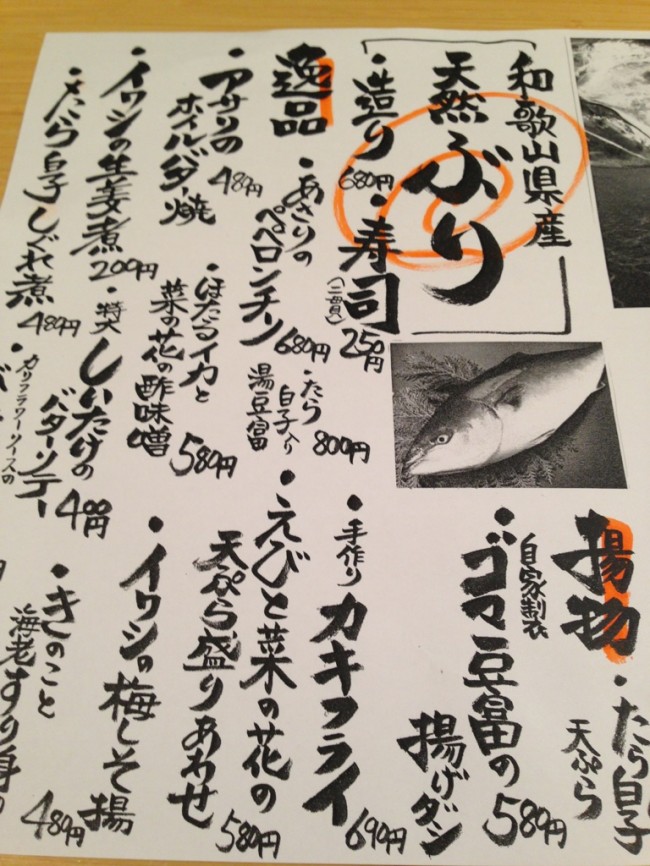 和歌山県産
天然ぶり
・造り
680円
・寿司
(二貫)
250円
逸品
・あさりの
ペペロンチーノ
680円
・たら
白子入り
湯豆富
800円
・アサリの
ホイルバター焼
480円
・ほたるイカと
菜の花の酢味噌
580円
・イワシの生姜煮
200円
・特大
しいたけの
バターソテー
400円
・たら白子しぐれ煮
480円
・カリフラワーソースの
揚物
・たら白子
天ぷら
・自家製
ゴマ豆富の
揚げダシ
580円
・手作り
カキフライ
690円
・えびと菜の花の
天ぷら盛りあわせ
580円
・イワシの梅しそ揚
480円
・きのこと
海老すり身の